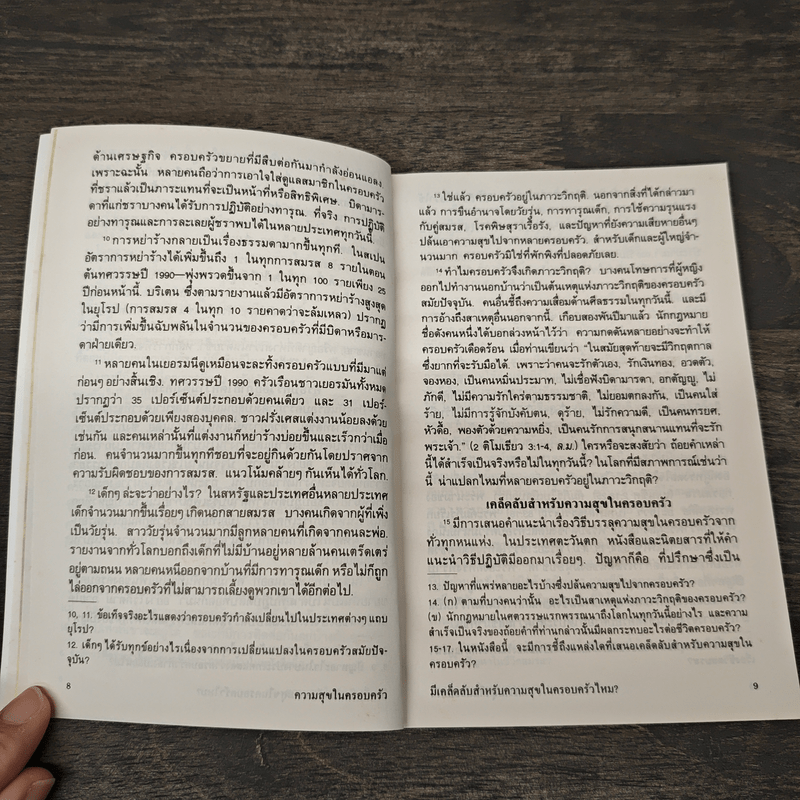 ด้านเศรษฐกิจ ครอบครัวขยายที่มีสืบต่อกันมากำลังอ่อนแอลง
เพราะฉะนั้น หลายคนถือว่าการเอาใจใส่ดูแลสมาชิกในครอบครัว
ที่ชราแล้วเป็นภาระแทนที่จะเป็นหน้าที่หรือสิทธิพิเศษ. บิดามาร-
ดาที่แก่ชราบางคนได้รับการปฏิบัติอย่างทารุณ. ที่จริง การปฏิบัติ
อย่างทารุณและการละเลยผู้ชราพบได้ในหลายประเทศทุกวันนี้.
10 การหย่าร้างกลายเป็นเรื่องธรรมดามากขึ้นทุกที. ในสเปน
อัตราการหย่าร้างได้เพิ่มขึ้นถึง 1 ในทุกการสมรส 8 รายในตอน
ต้นทศวรรษปี 1990—พุ่งพรวดขึ้นจาก 1 ในทุก 100 รายเพียง 25
ปีก่อนหน้านี้. บริเตน ซึ่งตามรายงานแล้วมีอัตราการหย่าร้างสูงสุด
ในยุโรป (การสมรส 4 ในทุก 10 รายคาดว่าจะล้มเหลว) ปรากฏ
ว่ามีการเพิ่มขึ้นฉับพลันในจำนวนของครอบครัวที่มีบิดาหรือมาร-
ดาฝ่ายเดียว.
11 หลายคนในเยอรมนีดูเหมือนจะละทิ้งครอบครัวแบบที่มีมาแต่
ก่อนๆ อย่างสิ้นเชิง. ทศวรรษปี 1990 ครัวเรือนชาวเยอรมันทั้งหมด
ปรากฏว่า 35 เปอร์เซ็นต์ประกอบด้วยคนเดียว และ 31 เปอร์-
เซ็นต์ประกอบด้วยเพียงสองบุคคล. ชาวฝรั่งเศสแต่งงานน้อยลงด้วย
เช่นกัน และคนเหล่านั้นที่แต่งงานก็หย่าร้างบ่อยขึ้นและเร็วกว่าเมื่อ
ก่อน. คนจำนวนมากขึ้นทุกทีชอบที่จะอยู่กินด้วยกันโดยปราศจาก
ความรับผิดชอบของการสมรส. แนวโน้มคล้ายๆ กันเห็นได้ทั่วโลก.
12 เด็กๆ ล่ะจะว่าอย่างไร? ในสหรัฐและประเทศอื่นหลายประเทศ
เด็กจำนวนมากขึ้นเรื่อยๆ เกิดนอกสายสมรส บางคนเกิดจากผู้ที่เพิ่ง
เป็นวัยรุ่น. สาววัยรุ่นจำนวนมากมีลูกหลายคนที่เกิดจากคนละพ่อ.
รายงานจากทั่วโลกบอกถึงเด็กที่ไม่มีบ้านอยู่หลายล้านคนเตร็ดเตร่
อยู่ตามถนน หลายคนหนีออกจากบ้านที่มีการทารุณเด็ก หรือไม่ก็ถูก
ไล่ออกจากครอบครัวที่ไม่สามารถเลี้ยงดูพวกเขาได้อีกต่อไป.
10, 11. ข้อเท็จจริงอะไรแสดงว่าครอบครัวกำลังเปลี่ยนไปในประเทศต่างๆ แถบ
ยุโรป?
12. เด็กๆ ได้รับทุกข์อย่างไรเนื่องจากการเปลี่ยนแปลงในครอบครัวสมัยปัจ-
จุบัน?
8
ความสุขในครอบครัว
13 ใช่แล้ว ครอบครัวอยู่ในภาวะวิกฤติ. นอกจากสิ่งที่ได้กล่าวมา
แล้ว การขืนอำนาจโดยวัยรุ่น, การทารุณเด็ก, การใช้ความรุนแรง
กับคู่สมรส, โรคพิษสุราเรื้อรัง, และปัญหาที่ยังความเสียหายอื่นๆ
ปล้นเอาความสุขไปจากหลายครอบครัว. สำหรับเด็กและผู้ใหญ่จำ-
นวนมาก ครอบครัวมิใช่ที่พักพิงที่ปลอดภัยเลย.
14 ทำไมครอบครัวจึงเกิดภาวะวิกฤติ? บางคนโทษการที่ผู้หญิง
ออกไปทำงานนอกบ้านว่าเป็นต้นเหตุแห่งภาวะวิกฤติของครอบครัว
สมัยปัจจุบัน. คนอื่นชี้ถึงความเสื่อมด้านศีลธรรมในทุกวันนี้. และมี
การอ้างถึงสาเหตุอื่นนอกจากนี้. เกือบสองพันปีมาแล้ว นักกฎหมาย
ชื่อดังคนหนึ่งได้บอกล่วงหน้าไว้ว่า ความกดดันหลายอย่างจะทำให้
ครอบครัวเดือดร้อน เมื่อท่านเขียนว่า “ในสมัยสุดท้ายจะมีวิกฤตกาล
ซึ่งยากที่จะรับมือได้. เพราะว่าคนจะรักตัวเอง, รักเงินทอง, อวดตัว,
จองหอง, เป็นคนหมิ่นประมาท, ไม่เชื่อฟังบิดามารดา, อกตัญญู, ไม่
ภักดี, ไม่มีความรักใคร่ตามธรรมชาติ, ไม่ยอมตกลงกัน, เป็นคนใส่
ร้าย, ไม่มีการรู้จักบังคับตน, ดุร้าย, ไม่รักความดี, เป็นคนทรยศ,
หัวดื้อ, พองตัวด้วยความหยิ่ง, เป็นคนรักการสนุกสนานแทนที่จะรัก
พระเจ้า.” (2 ติโมเธียว 3:1-4, ล.ม.) ใครหรือจะสงสัยว่า ถ้อยคำเหล่า
นี้ได้สำเร็จเป็นจริงหรือไม่ในทุกวันนี้? ในโลกที่มีสภาพการณ์เช่นว่า
นี้ น่าแปลกไหมที่หลายครอบครัวอยู่ในภาวะวิกฤติ?
เคล็ดลับสำหรับความสุขในครอบครัว
15 มีการเสนอคำแนะนำเรื่องวิธีบรรลุความสุขในครอบครัวจาก
ทั่วทุกหนแห่ง. ในประเทศตะวันตก หนังสือและนิตยสารที่ให้คำ
แนะนำวิธีปฏิบัติมีออกมาเรื่อยๆ. ปัญหาก็คือ ที่ปรึกษาซึ่งเป็น
13. ปัญหาที่แพร่หลายอะไรบ้างซึ่งปล้นความสุขไปจากครอบครัว?
14. (ก) ตามที่บางคนว่านั้น อะไรเป็นสาเหตุแห่งภาวะวิกฤติของครอบครัว?
(ข) นักกฎหมายในศตวรรษแรกพรรณนาถึงโลกในทุกวันนี้อย่างไร และความ
สำเร็จเป็นจริงของถ้อยคำที่ท่านกล่าวนั้นมีผลกระทบอะไรต่อชีวิตครอบครัว?
15-17. ในหนังสือนี้ จะมีการชี้ถึงแหล่งใดที่เสนอเคล็ดลับสำหรับความสุขใน
ครอบครัว?
มีเคล็ดลับสำหรับความสุขในครอบครัวไหม?
9